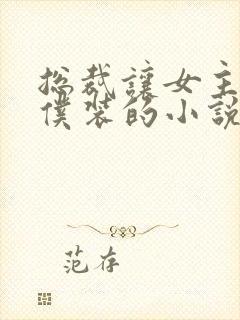 总裁讓女主
僕裝的小說
范存